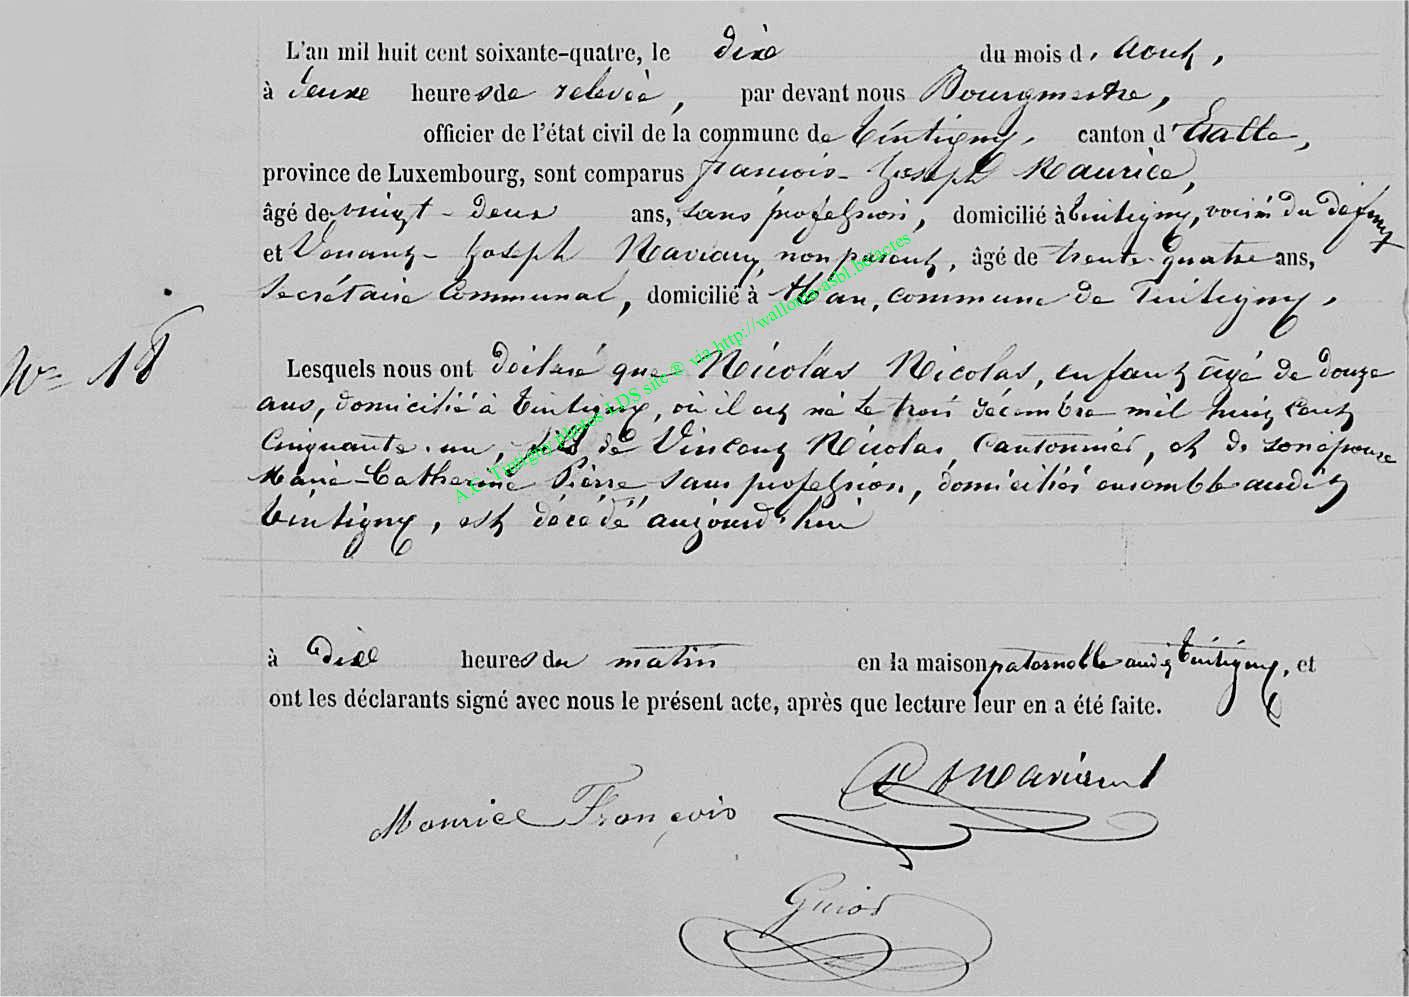 L'an mil huit cent soixante-quatre, le dix du mois d'Aout,
à deux heures de relevée, par devant nous Bourgmestre,
officier de l'état civil de la commune de Tintigny, canton d'Etalle,
province de Luxembourg, sont comparus François-Joseph Maurice,
âgé de vingt-deux ans, sans profession, domicilié à Tintigny, voisin du défunt
et Venant-Joseph Maviaux, non parent, âgé de trente-quatre ans,
Secrétaire Communal, domicilié à Han, commune de Tintigny.
N° 18
Lesquels nous ont déclaré que Nicolas Nicolas, enfant âgé de douze
ans, domicilié à Tintigny, où il est né le trois décembre mil huit cent
cinquante-un, fils de Vincent Nicolas, Cantonnier, et de son épouse
Marie-Catherine Pierre, sans profession, domiciliés ensemble audit
Tintigny, est décédé aujourd'hui
à dix heures du matin en la maison paternelle audit Tintigny, et
ont les déclarants signé avec nous le présent acte, après que lecture leur en a été faite.
Maurice François
Guiot
A.C. Tintigny photos LDS site ® via http://wallonia-asbl.be/actes